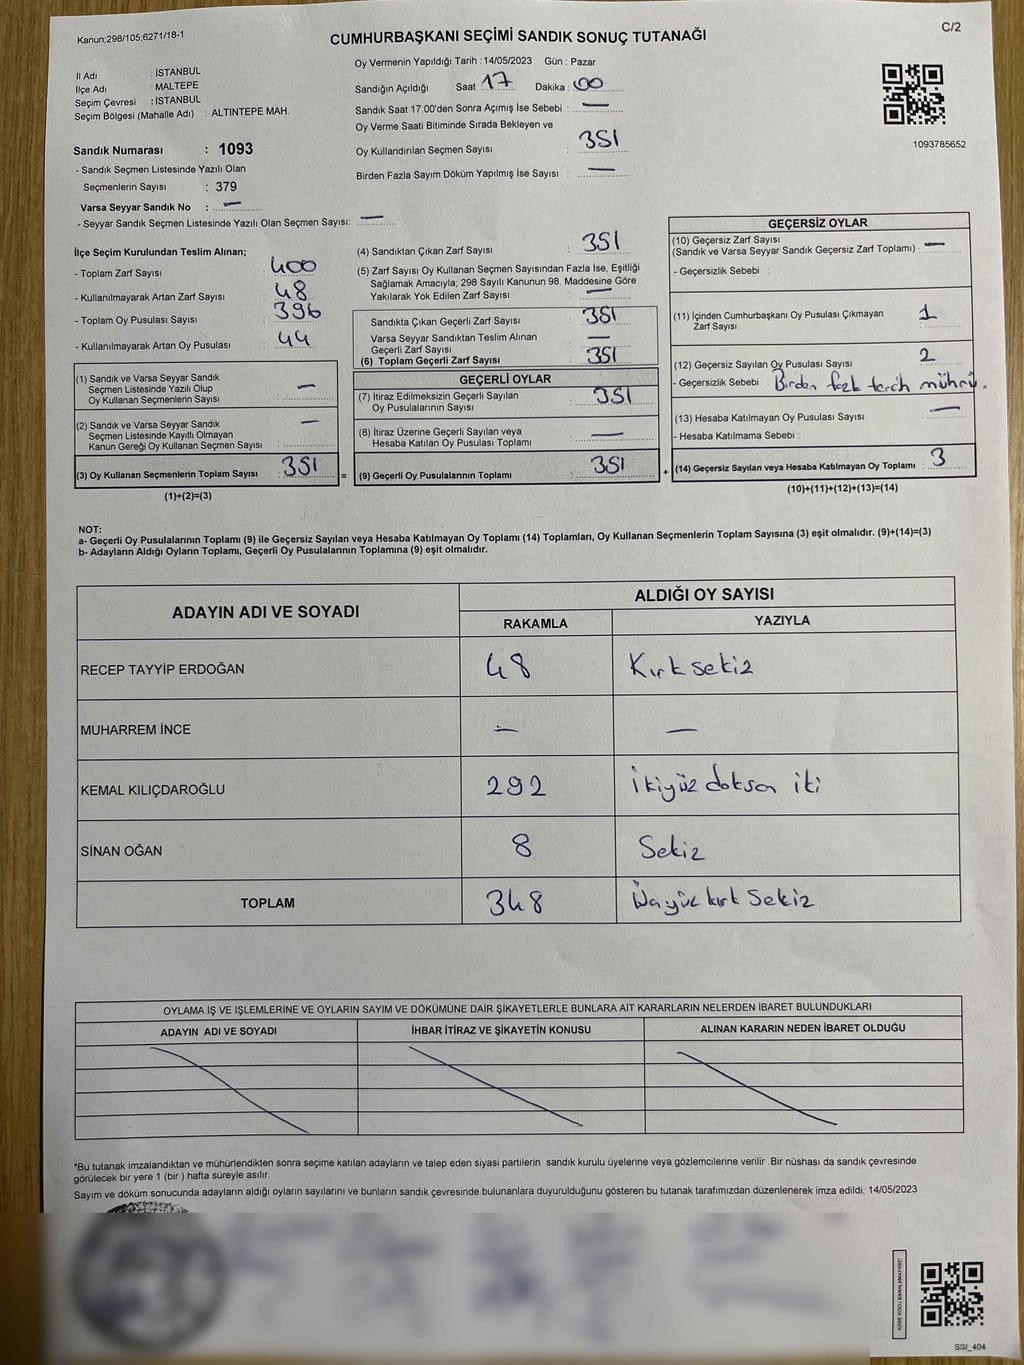 Kanun;298/105;6271/18-1
CUMHURBAŞKANI SEÇİMİ SANDIK SONUÇ TUTANAĞI
C/2
İl Adı : İSTANBUL
İlçe Adı : MALTEPE
Seçim Çevresi : İSTANBUL
Seçim Bölgesi (Mahalle Adı) : ALTINTEPE MAH.
Sandık Numarası : 1093
- Sandık Seçmen Listesinde Yazılı Olan
Seçmenlerin Sayısı : 379
Varsa Seyyar Sandık No : —
- Seyyar Sandık Seçmen Listesinde Yazılı Olan Seçmen Sayısı: —
Oy Vermenin Yapıldığı Tarih : 14/05/2023 Gün : Pazar
Sandığın Açıldığı Saat : 17 Dakika : 00
Sandık Saat 17.00'den Sonra Açımış İse Sebebi : —
Oy Verme Saati Bitiminde Sırada Bekleyen ve
Oy Kullandırılan Seçmen Sayısı : 351
Birden Fazla Sayım Döküm Yapılmış İse Sayısı : —
1093785652
İlçe Seçim Kurulundan Teslim Alınan;
- Toplam Zarf Sayısı : 400
- Kullanılmayarak Artan Zarf Sayısı : 48
- Toplam Oy Pusulası Sayısı : 396
- Kullanılmayarak Artan Oy Pusulası : 44
(1) Sandık ve Varsa Seyyar Sandık
Seçmen Listesinde Yazılı Olup
Oy Kullanan Seçmenlerin Sayısı : —
(2) Sandık ve Varsa Seyyar Sandık
Seçmen Listesinde Kayıtlı Olmayan
Kanun Gereği Oy Kullanan Seçmen Sayısı : —
(3) Oy Kullanan Seçmenlerin Toplam Sayısı : 351 =
(1)+(2)=(3)
(4) Sandıktan Çıkan Zarf Sayısı : 351
(5) Zarf Sayısı Oy Kullanan Seçmen Sayısından Fazla İse, Eşitliği
Sağlamak Amacıyla; 298 Sayılı Kanunun 98. Maddesine Göre
Yakılarak Yok Edilen Zarf Sayısı : —
Sandıkta Çıkan Geçerli Zarf Sayısı : 351
Varsa Seyyar Sandıktan Teslim Alınan
Geçerli Zarf Sayısı : —
(6) Toplam Geçerli Zarf Sayısı : 351
GEÇERLİ OYLAR
(7) İtiraz Edilmeksizin Geçerli Sayılan
Oy Pusulalarının Sayısı : 351
(8) İtiraz Üzerine Geçerli Sayılan veya
Hesaba Katılan Oy Pusulası Toplamı : —
(9) Geçerli Oy Pusulalarının Toplamı : 351 +
GEÇERSİZ OYLAR
(10) Geçersiz Zarf Sayısı
(Sandık ve Varsa Seyyar Sandık Geçersiz Zarf Toplamı) : —
- Geçersizlik Sebebi :
(11) İçinden Cumhurbaşkanı Oy Pusulası Çıkmayan
Zarf Sayısı : 1
(12) Geçersiz Sayılan Oy Pusulası Sayısı : 2
- Geçersizlik Sebebi : Birden fazla tercih mührü.
(13) Hesaba Katılmayan Oy Pusulası Sayısı : —
- Hesaba Katılmama Sebebi :
(14) Geçersiz Sayılan veya Hesaba Katılmayan Oy Toplamı : 3
(10)+(11)+(12)+(13)=(14)
NOT:
a- Geçerli Oy Pusulalarının Toplamı (9) ile Geçersiz Sayılan veya Hesaba Katılmayan Oy Toplamı (14) Toplamları, Oy Kullanan Seçmenlerin Toplam Sayısına (3) eşit olmalıdır. (9)+(14)=(3)
b- Adayların Aldığı Oyların Toplamı, Geçerli Oy Pusulalarının Toplamına (9) eşit olmalıdır.
ADAYIN ADI VE SOYADI
ALDIĞI OY SAYISI
RAKAMLA YAZIYLA
RECEP TAYYİP ERDOĞAN 48 Kırk sekiz
MUHARREM İNCE — —
KEMAL KILIÇDAROĞLU 292 İkiyüz doksan iki
SİNAN OĞAN 8 Sekiz
TOPLAM 348 Üçyüz kırk sekiz
OYLAMA İŞ VE İŞLEMLERİNE VE OYLARIN SAYIM VE DÖKÜMÜNE DAİR ŞİKAYETLERLE BUNLARA AİT KARARLARIN NELERDEN İBARET BULUNDUKLARI
ADAYIN ADI VE SOYADI İHBAR İTİRAZ VE ŞİKAYETİN KONUSU ALINAN KARARIN NEDEN İBARET OLDUĞU
*Bu tutanak imzalandıktan ve mühürlendikten sonra seçime katılan adayların ve talep eden siyasi partilerin sandık kurulu üyelerine veya gözlemcilerine verilir .Bir nüshası da sandık çevresinde
görülecek bir yere 1 (bir ) hafta süreyle asılır.
Sayım ve döküm sonucunda adayların aldığı oyların sayılarını ve bunların sandık çevresinde bulunanlara duyurulduğunu gösteren bu tutanak tarafımızdan düzenlenerek imza edildi. 14/05/2023
KARE KODU KARALAMAYINIZ!
SSI_404